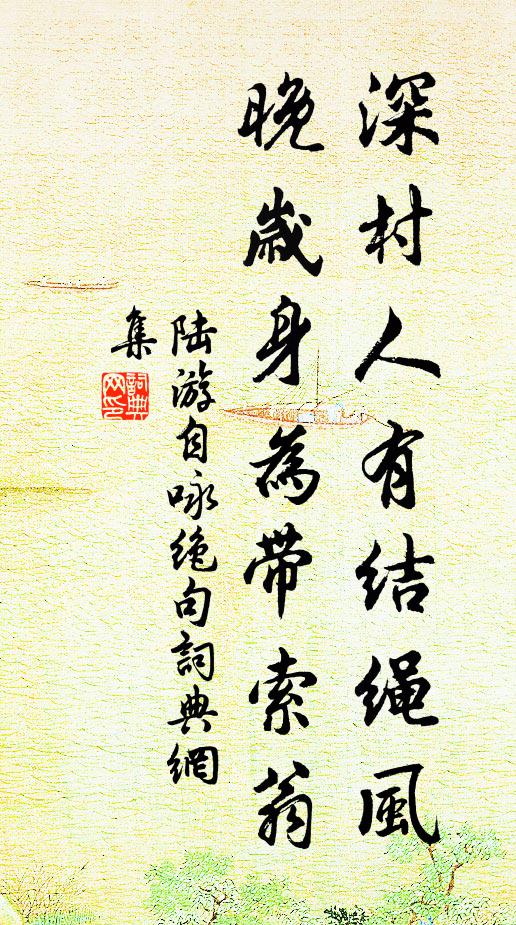 深村人有結繩風
晚歲身為帶索翁
陆游自咏绝句詞典網
集
詞典
网印